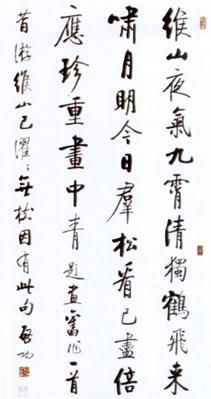 緱山夜氣九霄清獨鶴飛来
嘯月明今日羣松看已盡倍
應珍重畫中青 題畫舊作一首
昔游緱山已濯〻無松因有此句 啟功